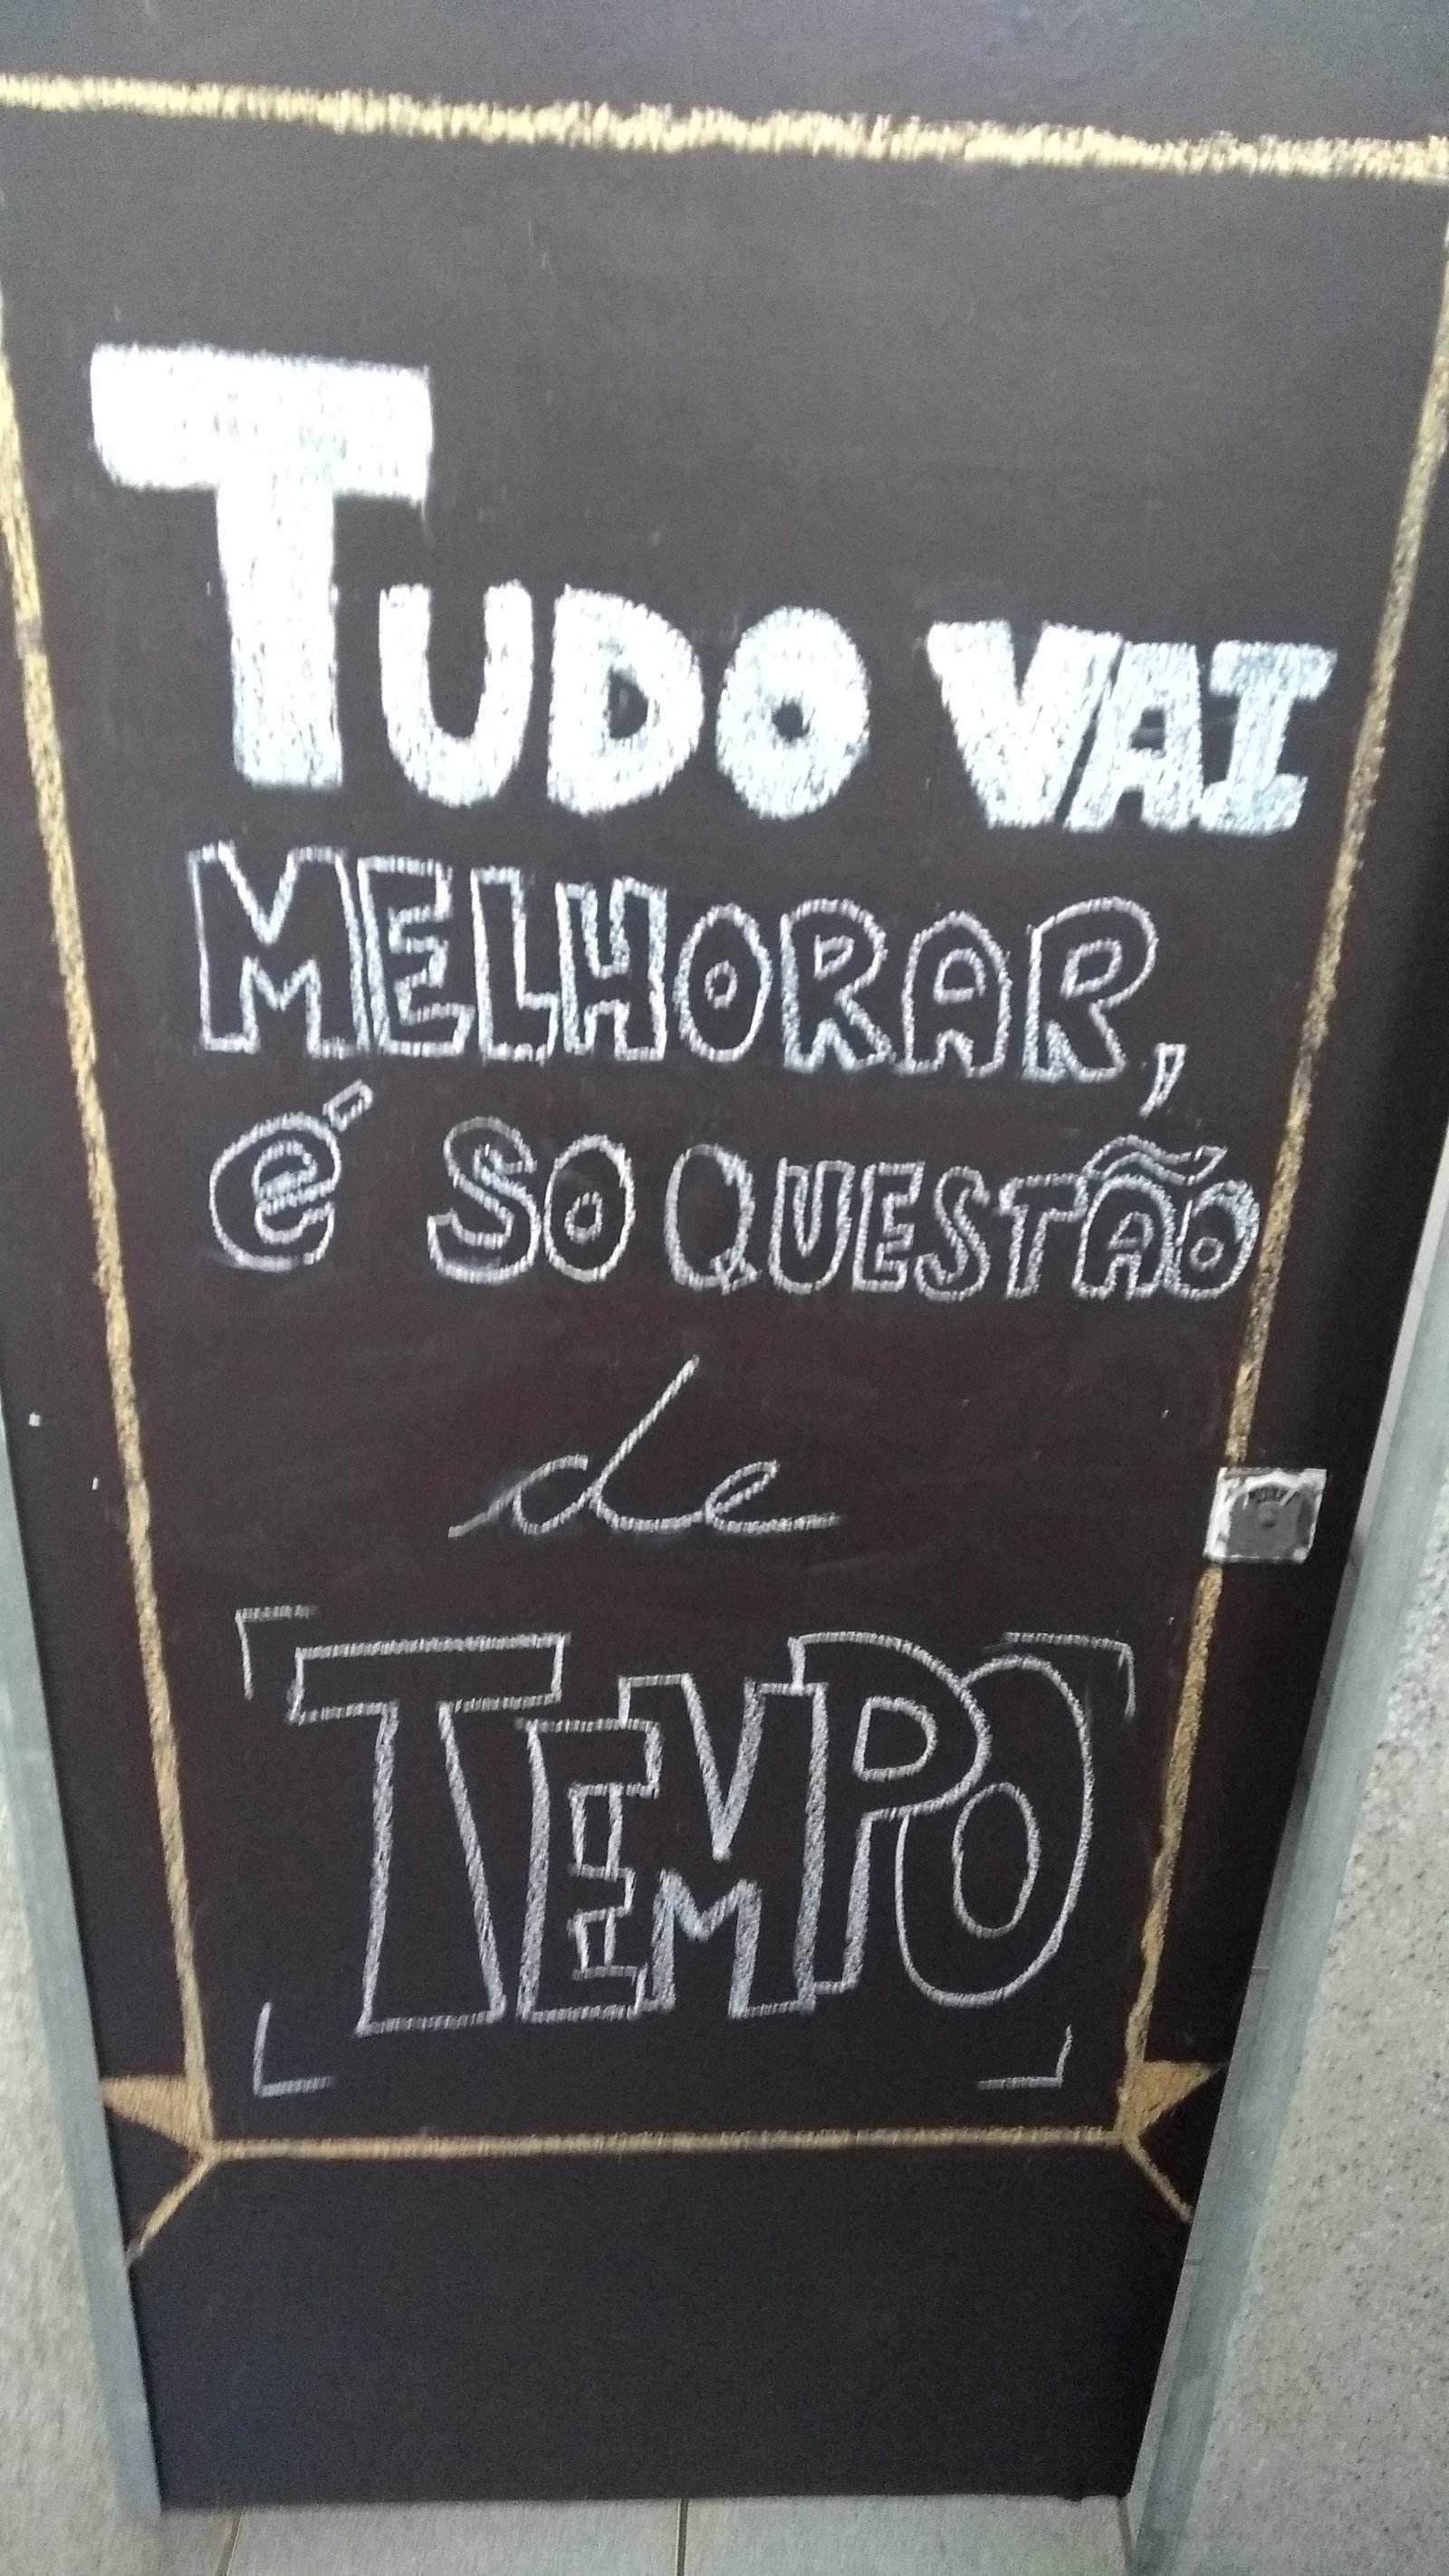 TUDO VAI
MELHORAR,
é SO QUESTÃO
de
TEMPO